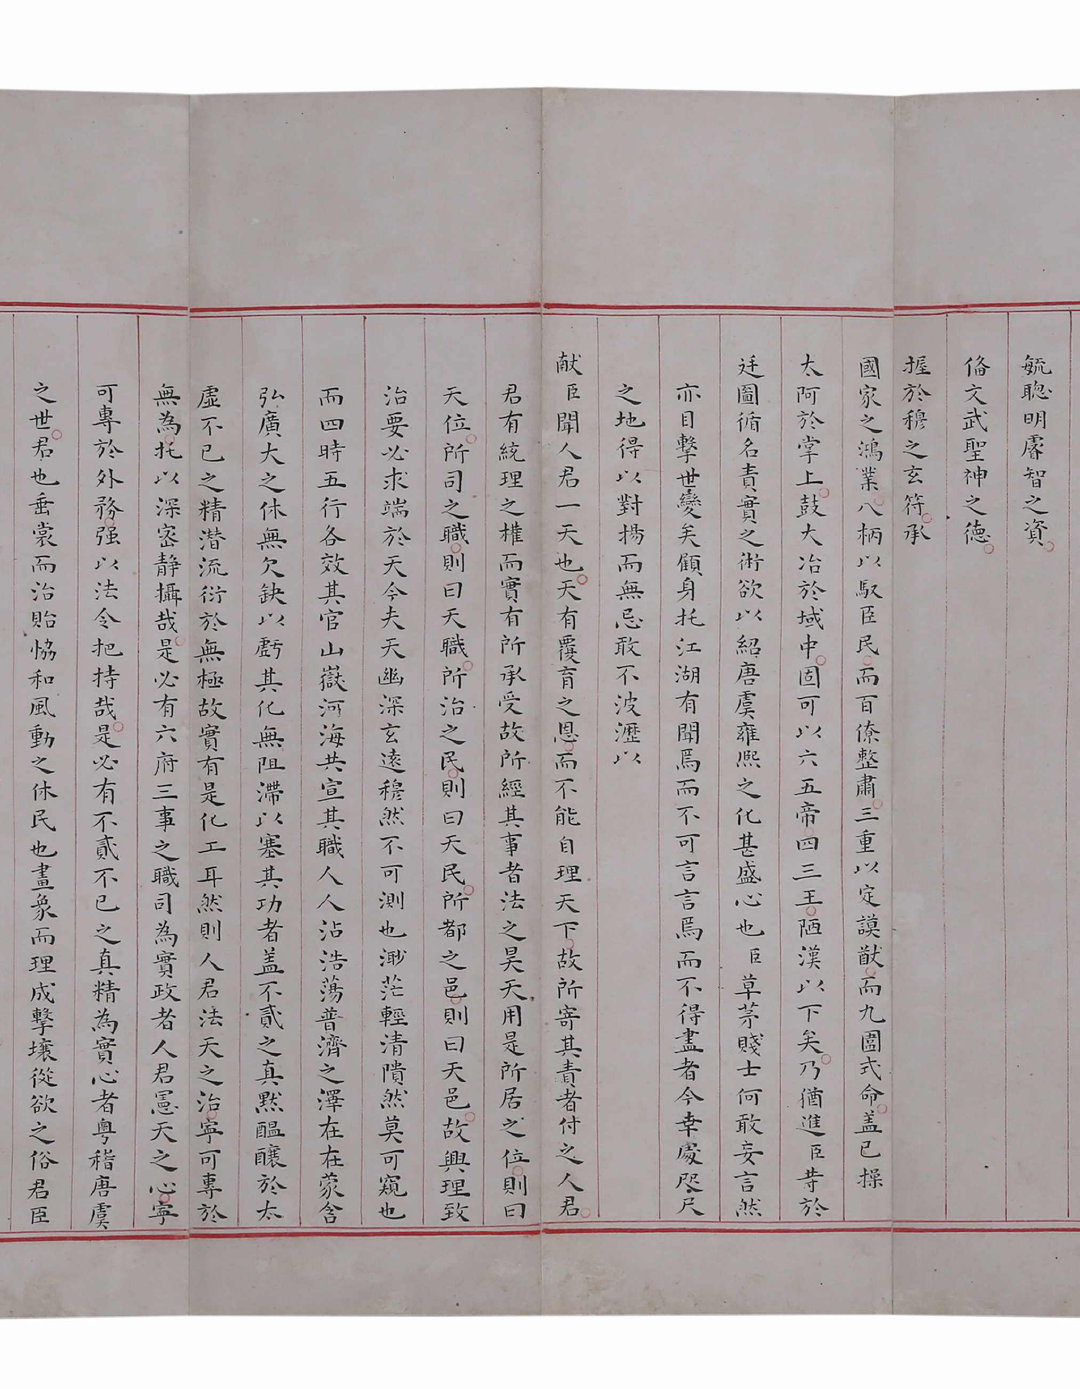 毓聰明睿智之資
俻文武聖神之德
握於穆之玄符承
國家之鴻業八柄以馭臣民而百僚整肅三重以定謨猷而九圍式命盖已操
太阿於掌上鼓大冶於域中固可以六五帝四三王陋漢以下矣乃猶進臣䓁於
廷圖循名責實之術欲以紹唐虞雍熙之化甚盛心也臣草茅賤士何敢妄言然
亦目擊世變矣顧身托江湖有聞焉而不可言言焉而不得盡者今幸處咫尺
之地得以對揚而無忌敢不披瀝以
献臣聞人君一天也天有覆育之恩而不能自理天下故所寄其責者付之人君
君有統理之權而實有所承受故所經其事者法之昊天用是所居之位則曰
天位所司之職則曰天職所治之民則曰天民所都之邑則曰天邑故興理致
治要必求端於天今夫天幽深玄遠穆然不可測也渺茫輕清隤然莫可窺也
而四時五行各效其官山嶽河海共宣其職人人沾浩蕩普濟之澤在在蒙含
弘廣大之休無欠缺以虧其化無阻滯以塞其功者盖不貳之真默醖釀於太
虛不已之精潛流衍於無極故實有是化工耳然則人君法天之治寜可專於
無為托以深宻靜攝哉是必有六府三事之職司為實政者人君憲天之心寜
可專於外務强以法令把持哉是必有不貳不已之真精為實心者粤稽唐虞
之世君也垂裳而治貽恊和風動之休民也畫象而理成擊壤從欲之俗君臣